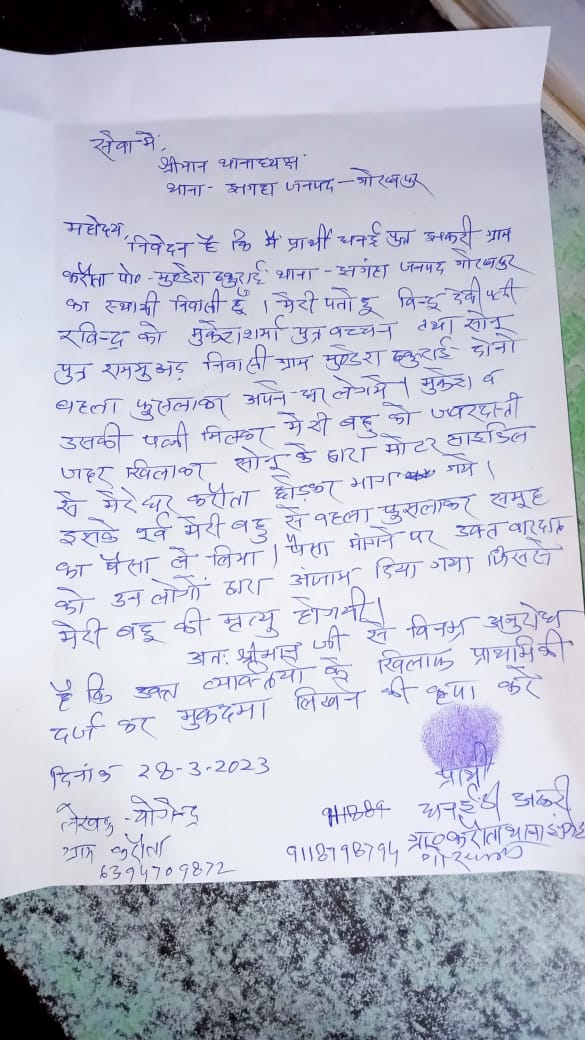 सेवा में,
श्रीमान थानाध्यक्ष
थाना - झगहा जनपद - गोरखपुर
महोदय,
निवेदन है कि मैं प्रार्थी धनई पुत्र झकरी ग्राम
करौता पो० - मुण्डेरा ठकुराई थाना - झगहा जनपद गोरखपुर
का स्थायी निवासी हूँ । मेरी पतोहू बिन्दू देवी पत्नी
रविन्द्र को मुकेश शर्मा पुत्र बच्चन तथा सोनू
पुत्र रामभुअड़ निवासी ग्राम मुण्डेरा ठकुराई दोनो
बहला फुसलाकर अपने घर लेगये । मुकेश व
उसकी पत्नी मिलकर मेरी बहू को ज्बरदस्ती
जहर खिलाकर सोनू के द्वारा मोटर साइकिल
से मेरे घर करौता छोड़कर भाग गये ।
इसके पूर्व मेरी बहू से बहला फुसलाकर समूह
का पैसा ले लिया । पैसा मांगने पर उक्त वारदात
को उन लोगों द्वारा अंजाम दिया गया जिससे
मेरी बहू की मृत्यु होगयी ।
अत: श्रीमान जी से विनम्र अनुरोध
है कि उक्त व्यक्तियों के खिलाफ प्राथमिकी
दर्ज कर मुकदमा लिखने की कृपा करे
दिनांक 28-3-2023
प्रार्थी
लेखक - योगेन्द्र
धनई झकरी
ग्राम करौता
ग्रा० करौता थाना
6394709872
9118798794
गोरखपुर